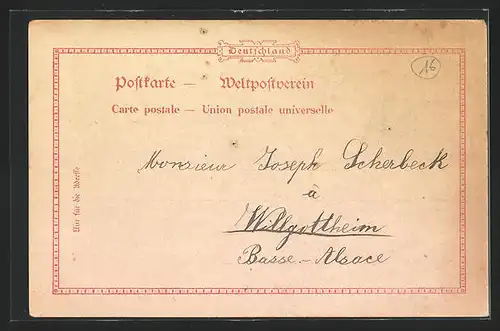 Deutschland
16
Postkarte — Weltpostverein
Carte postale — Union postale universelle
Nur für die Adresse
Monsieur Joseph Scherbeck
à
Willgottheim
Basse-Alsace